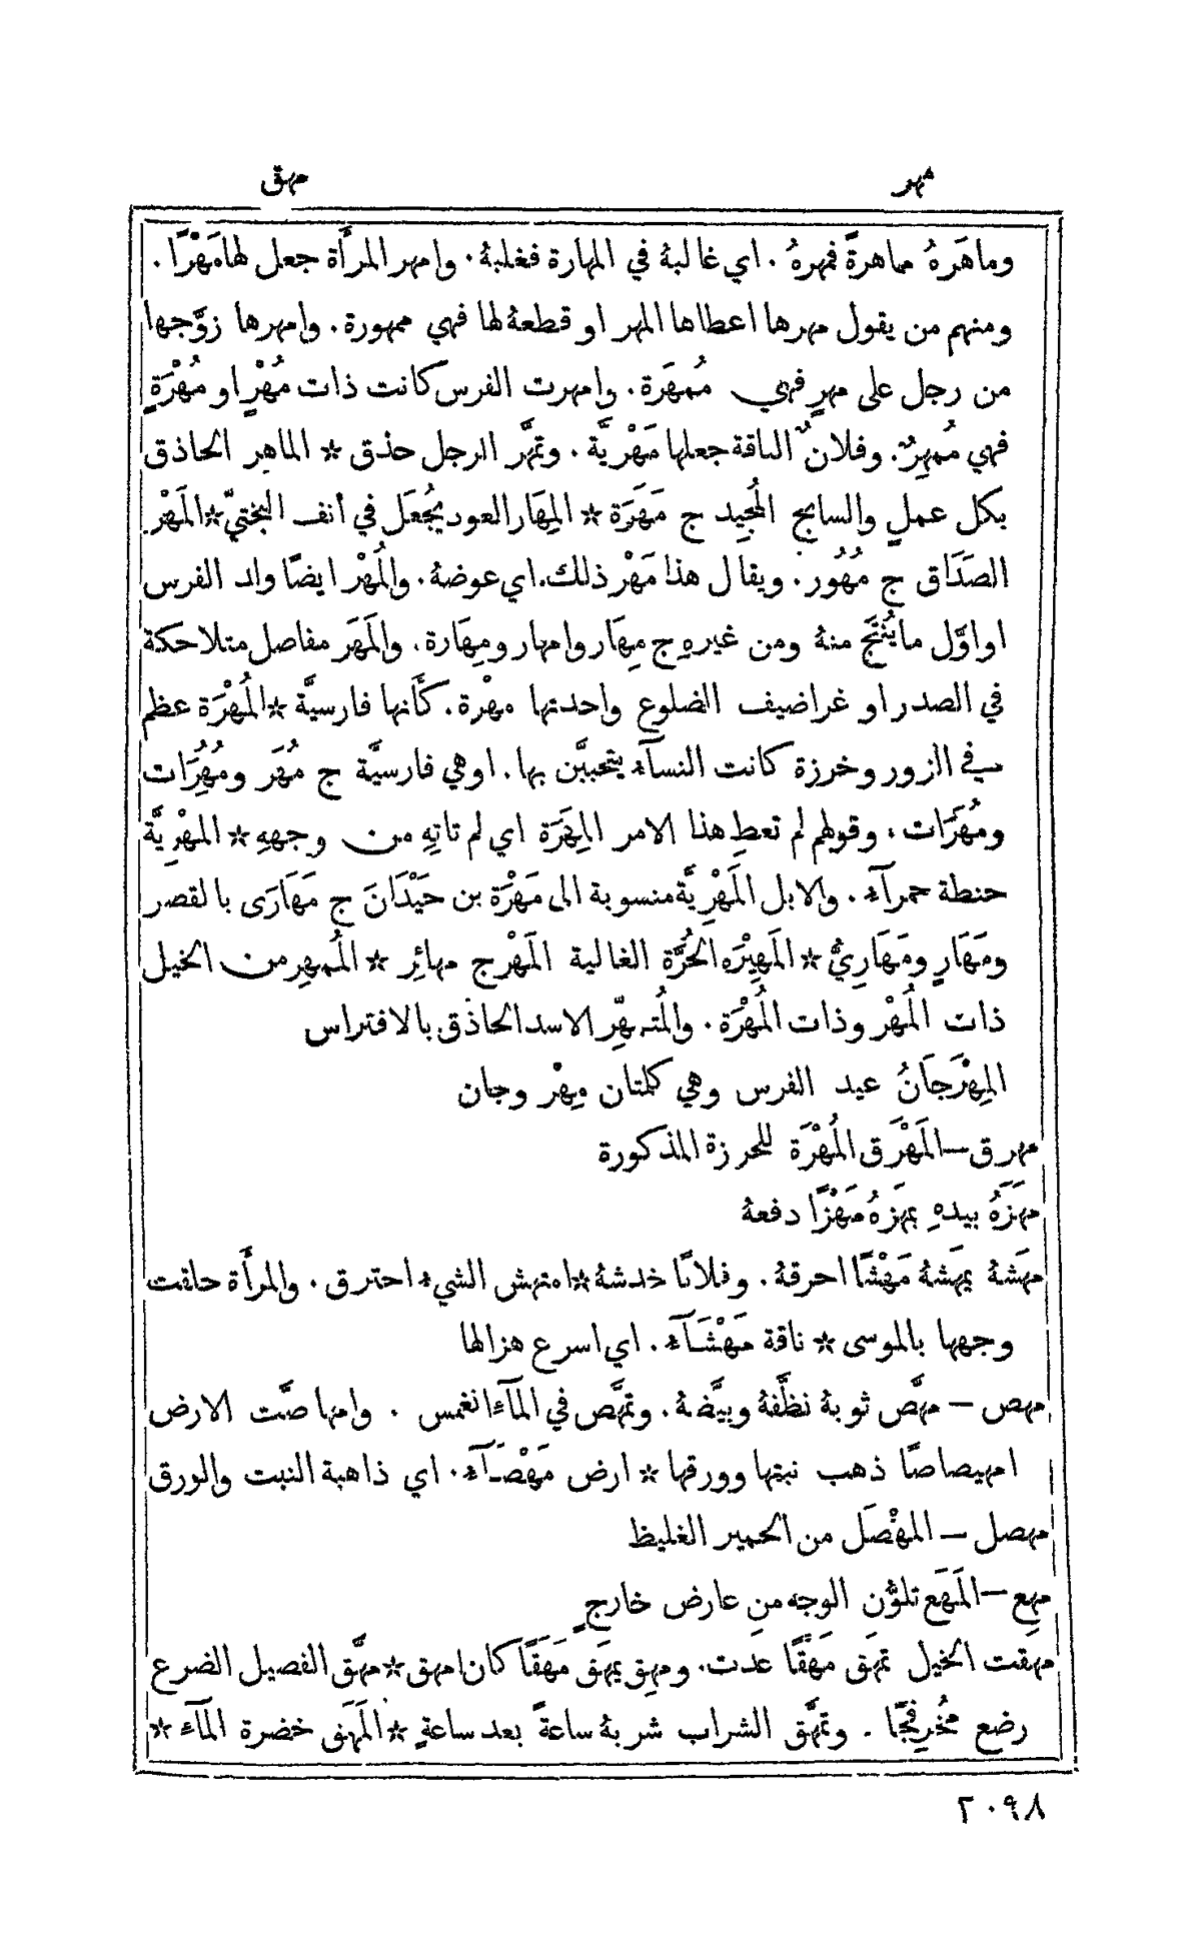 مهر
مهق
وماهَرهُ مماهرةً فمهرهُ . اي غالبهُ في المهارة فغلبهُ . وامهر المرأَة جعل لها مَهْرًا .
ومنهم من يقول مهرها اعطاها المهر او قطعهُ لها فهي ممهورة . وامهرها زوَّجها
من رجل على مهرٍ فهي مُمهَرة . وامهرت الفرس كانت ذات مُهْرٍ او مُهْرَةٍ
فهي مُمهِرٌ . وفلانٌ الناقة جعلها مَهْرِيَّة . وتمهَّر الرجل حذق * الماهر الحاذق
بكل عملٍ والسابح المُجِيد ج مَهَرَة * المِهَار العود يُجْعَل في أنف البختيّ * المَهْر
الصَدَاق ج مُهُور . ويقال هذا مَهْر ذلك . اي عوضهُ . والمُهْر ايضًا ولد الفرس
او اوَّل ما يُنتَج منهُ ومن غيرهِ ج مِهَار وامهار ومِهَارة . والمَهَر مفاصل متلاحكة
في الصدر او غراضيف الضلوع واحدتها مهْرة . كأَنها فارسيَّة * المُهْرَة عظم
في الزور وخرزة كانت النسآء يتحببَّن بها . او هي فارسيَّة ج مُهَر ومُهُرَات
ومُهَرَات . وقولهم لم تعطِ هذا الامر المِهَرَة اي لم تاتِهِ من وجههِ * المهْرِيَّة
حنطة حمرآء . والابل المَهْرِيَّة منسوبة الى مَهْرَة بن حَيْدَانَ ج مَهَارَى بالقصر
ومَهَارٍ ومَهَارِيُّ * المَهِيْرَه الحُرَّة الغالية المَهْر ج مهائِر * المُمهِر من الخيل
ذات المُهْر وذات المُهْرَة . والمُتمهِّر الاسد الحاذق بالافتراس
المِهْرَجَانُ عيد الفرس وهي كلمتان مِهْر وجان
مهرق — المَهْرَق المُهْرَة للحرزة المذكورة
مهَزَهُ بيدهِ يمهَزهُ مَهْزًا دفعهُ
مهَشهُ يمهَشهُ مَهْشًا احرقهُ . وفلانًا خدشهُ * امتهش الشيء احترق . والمرأَة حلقت
وجهها بالموسى * ناقة مَهْشَآء . اي اسرع هزالها
مهص — مهَّص ثوبهُ نظَّفهُ وبيَّضهُ . وتمهَّص في المآء انغمس . وامهاصَّت الارض
امهيصاصًا ذهب نبتها وورقها * ارض مَهْصَآء . اي ذاهبة النبت والورق
مهصل — المهْصَل من الحمير الغليظ
مهع — المَهَع تلوُّن الوجه من عارض خارجٍ
مهقت الخيل تمهَق مَهْقًا عدت . ومهِق يمهَق مَهَقًا كان امهق * مهَّق الفصيل الضرع
رضع مُخْرِفجًا . وتمهَّق الشراب شربهُ ساعةً بعد ساعةٍ * المَهَق خضرة المآء *
٢٠٩٨